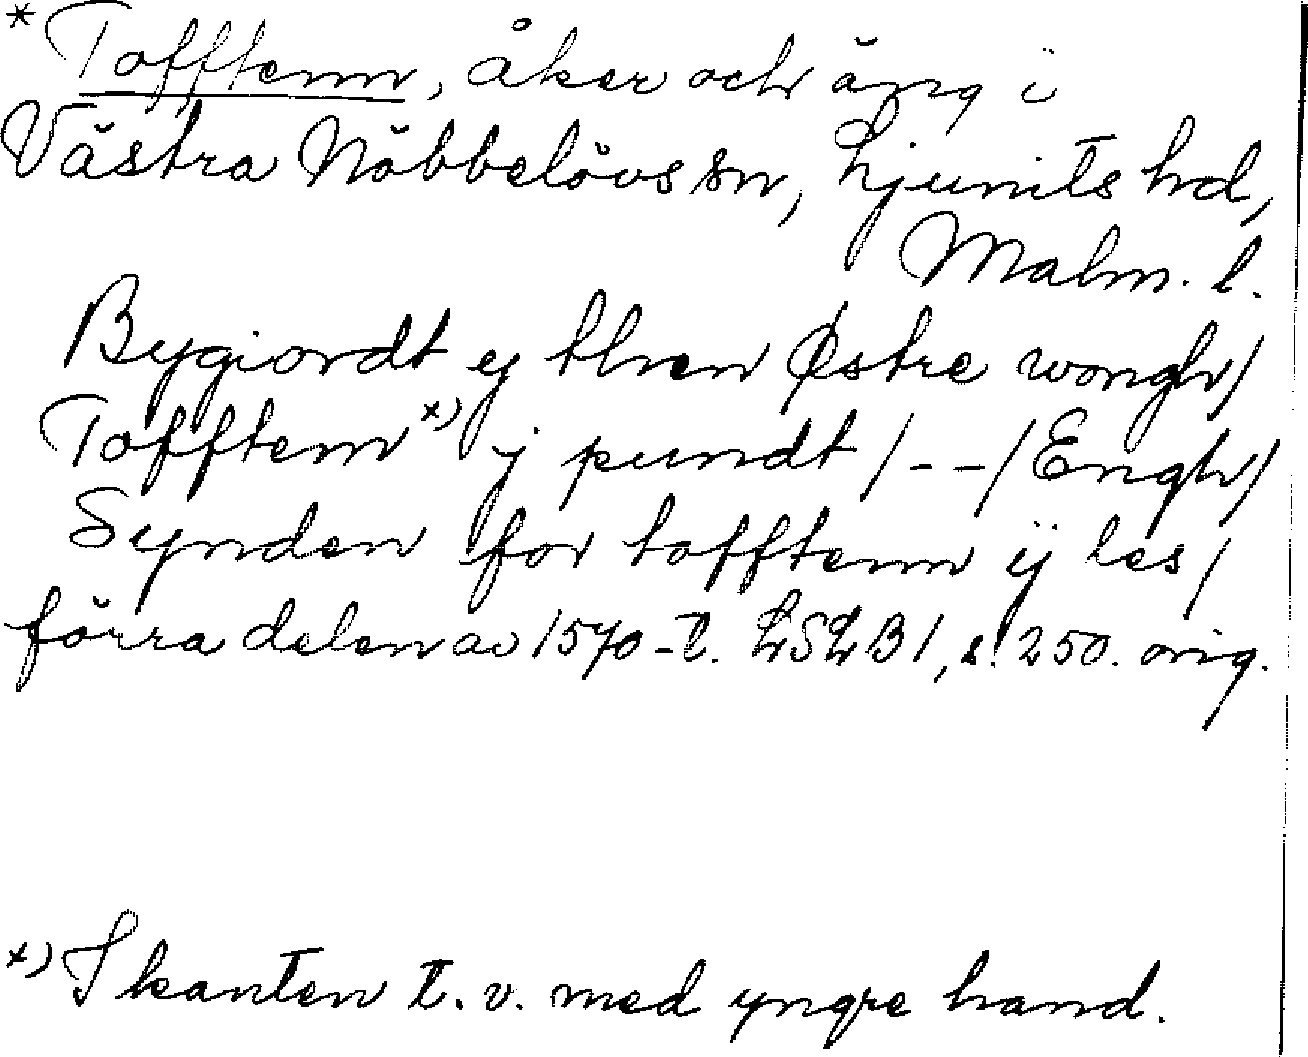 * Tofftenn, åker och äng i
Västra Nöbbelövs sn, Ljunits hd,
Malm. l.
Bygiordt ej then Østre wongh/
Tofftenn x) j pundt /--/ Engh/
Synden for tofftenn ij les/
förra delen av 1570-t. LSLB1, s. 250. orig.
x) I kanten t. v. med yngre hand.